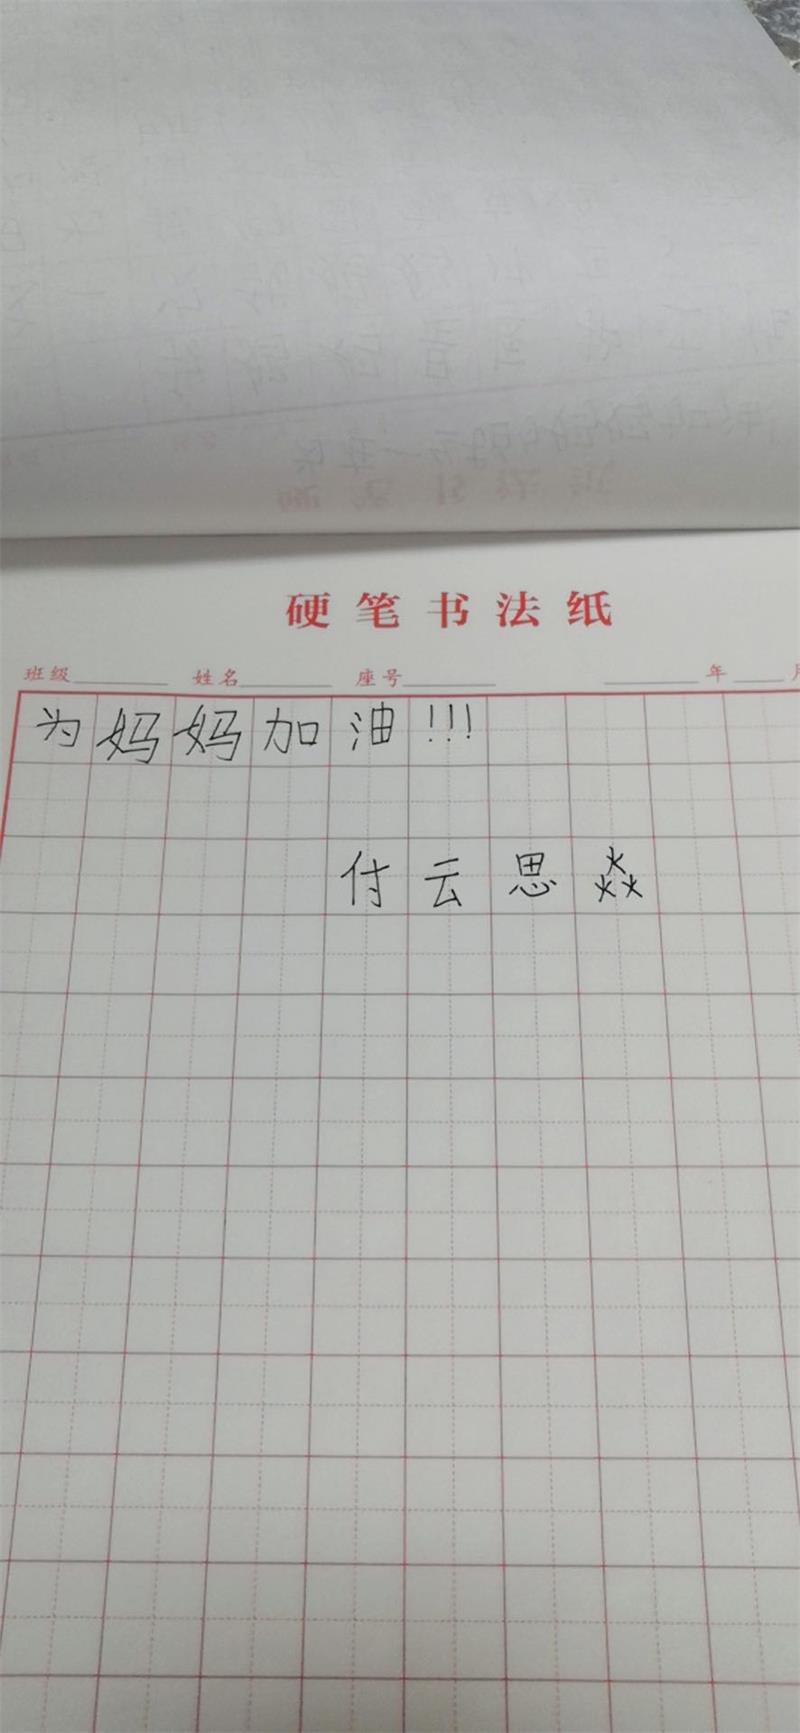 硬笔书法纸
班级 姓名 座号 年 月
为妈妈加油!!!
付云思焱